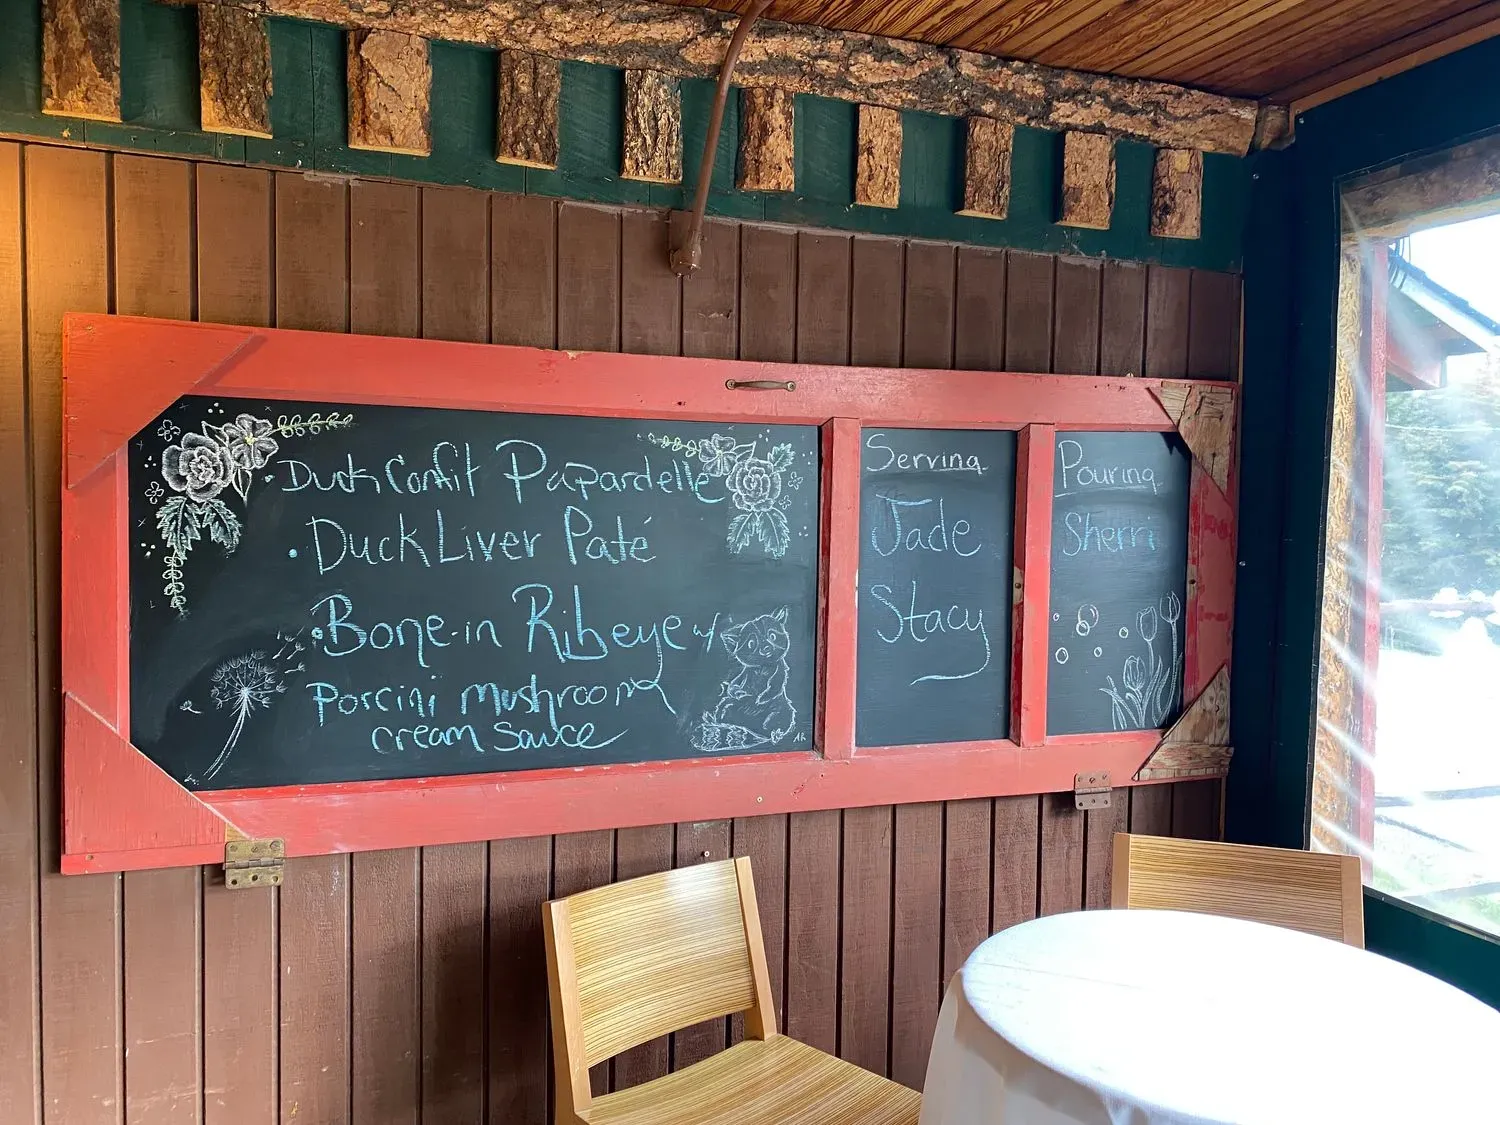 • Duck Confit Papardelle
• Duck Liver Paté
• Bone-in Ribeye w/
Porcini mushroom
cream sauce
AR
Serving
Jade
Stacy
Pouring
Sherri